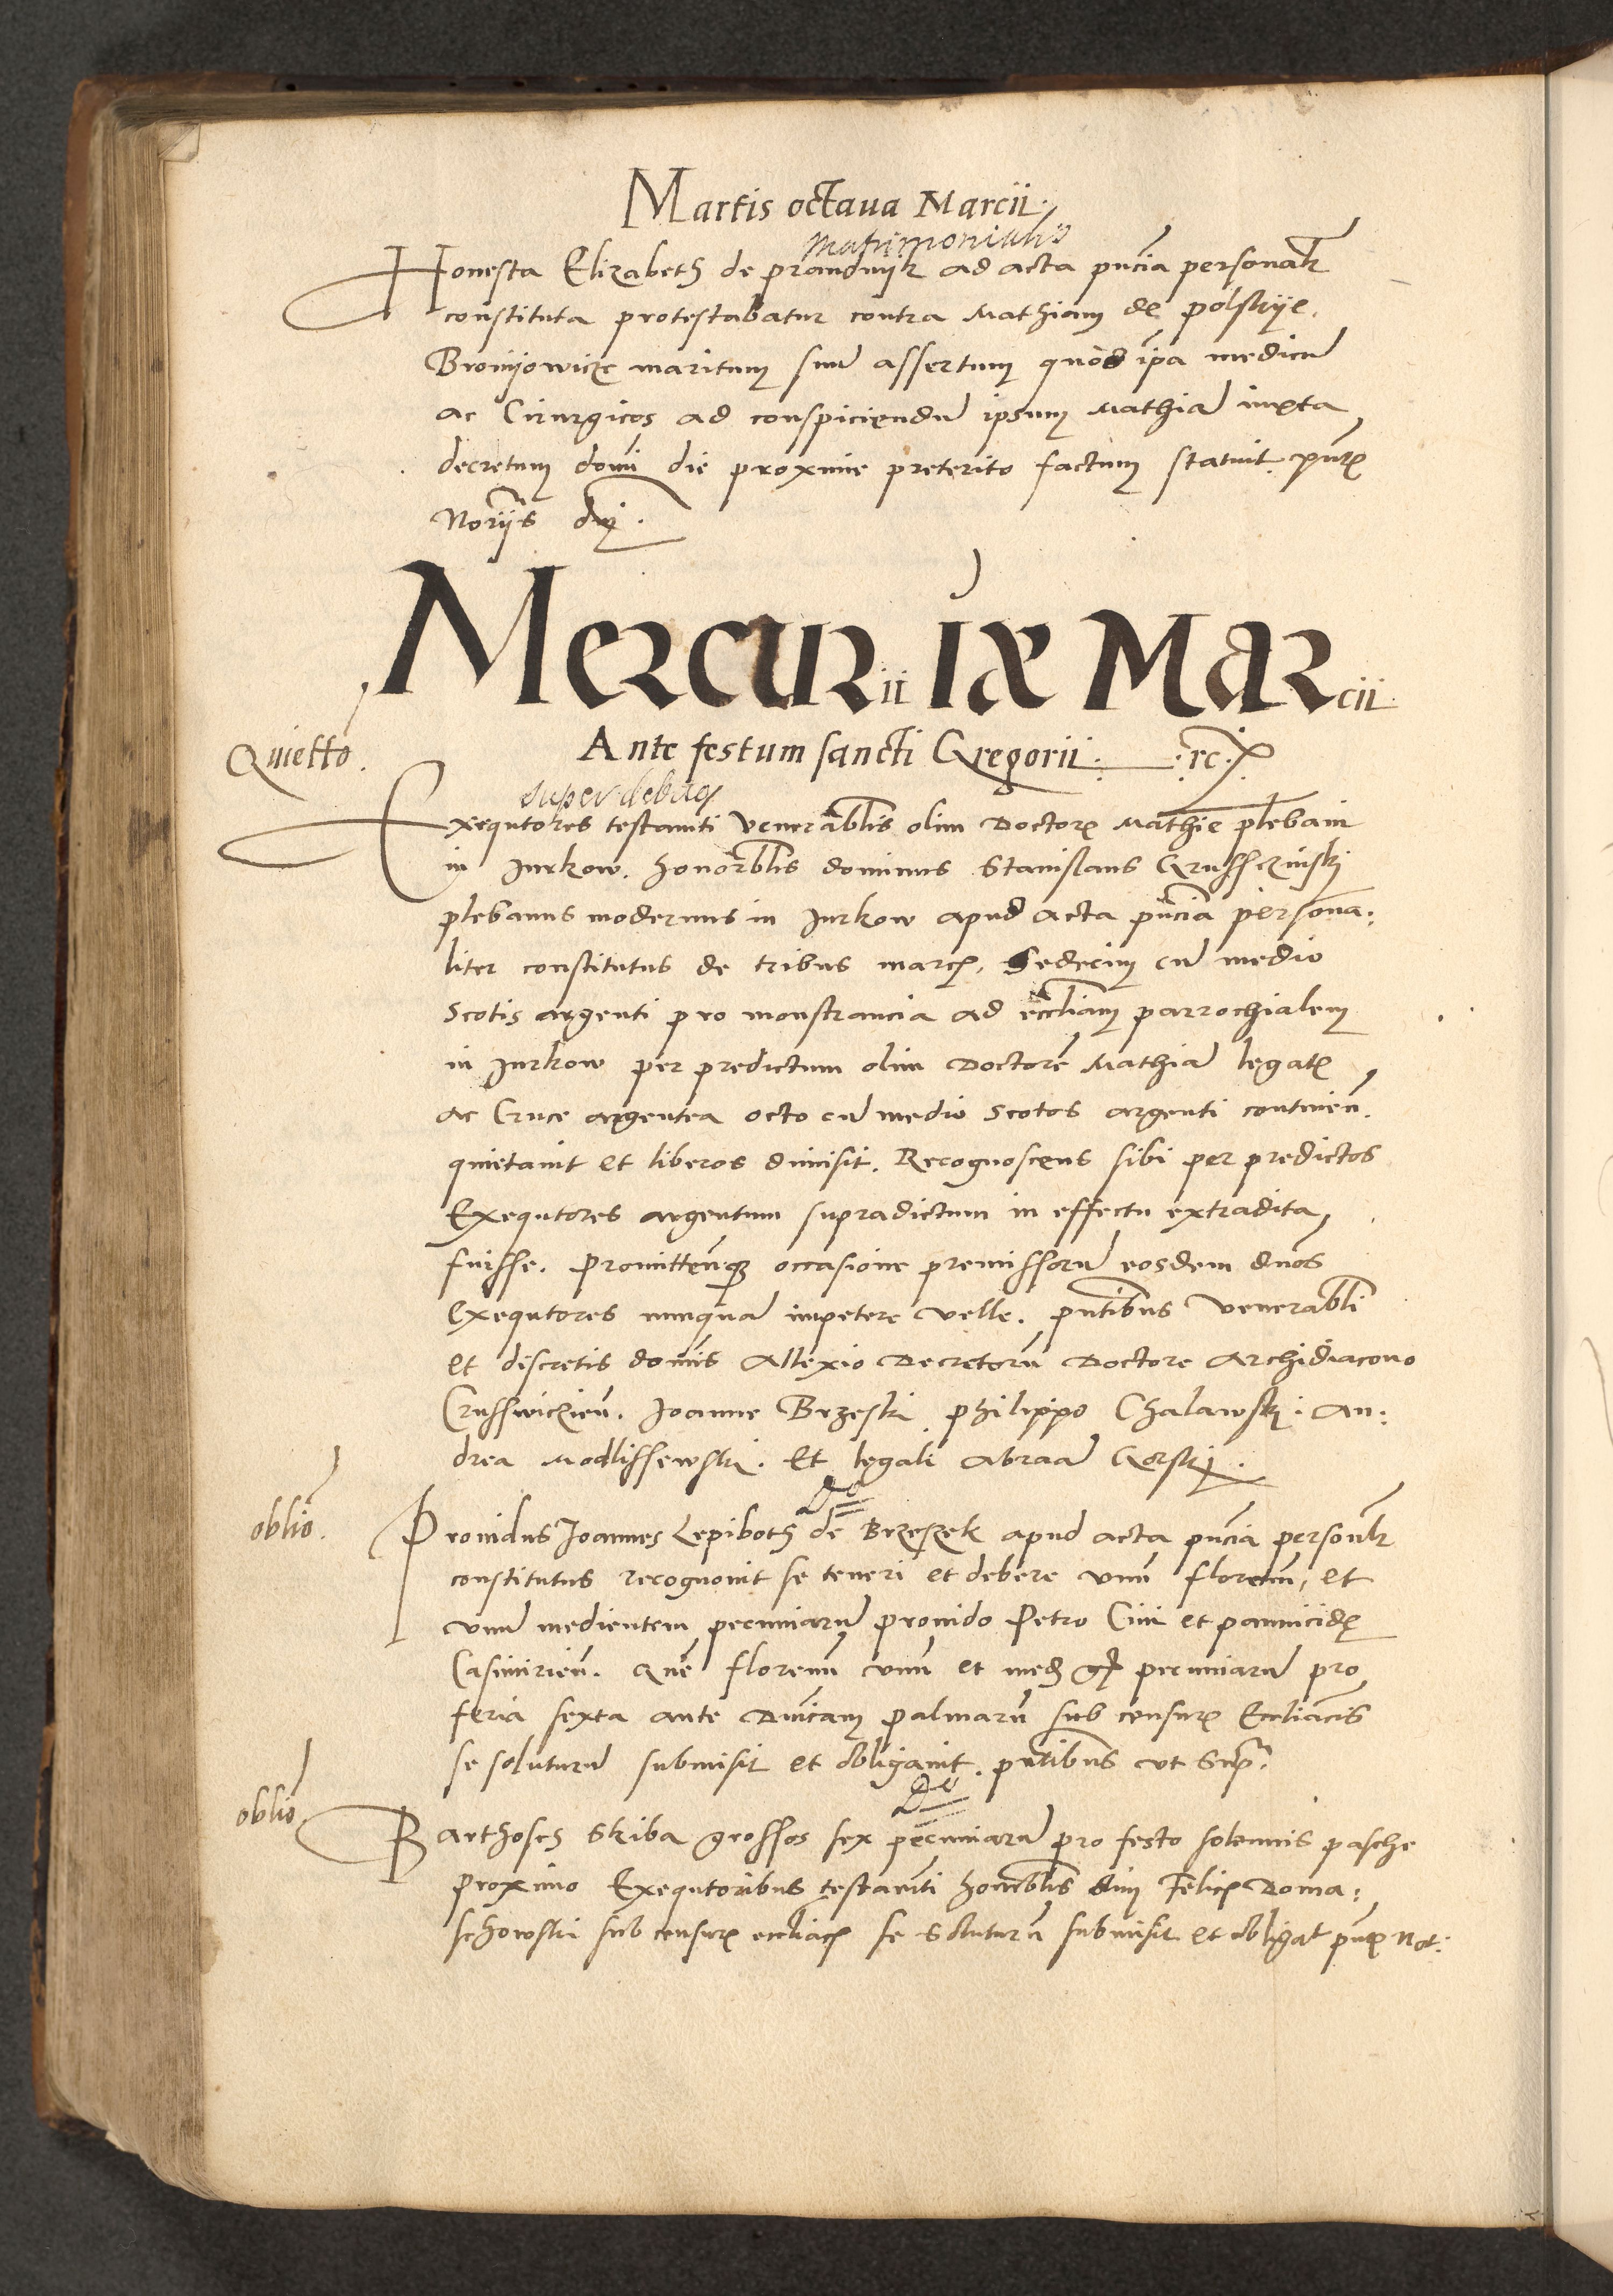 Martis octaua Marcii.
matrimonialis
Honesta Elizabeth de prandnijk ad acta pñcia personalr
constituta protestabatur contra Mathiam de polskije
Bronijowicze maritum suũ assertum quod ipa medicũ
ac Cirurgicos ad conspiciendũ ipsum Mathiã iuxta
decretum domĩ die proxime preterito factum statuit. pñtꝭ
Norijs
Mercurii IX Marcii
Ante festum sancti Gregorii. rc.
Quietto.
super debitꝭ
Exequtores testamti Venerablis olim Doctorꝭ Mathie plebani
in Jurkow. honorblis dominus Stanislaus Grussczinskj
plebanus modernus in Jurkow apud acta pñcia persona:
liter constitutus de tribus marcꝭ. Sedecim cũ medio
Scotis argenti pro monstrancia ad eccliam parrochialem
in Jurkow per predictum olim Doctorẽ Mathiã legatꝭ
ac Cruce argentea octo cũ medio Scotos argenti continẽn.
quietauit et liberos dimisit. Recognoscens sibi per predictos
Exequtores argentum supradictum in effectu extradita
fuisse. Promittenqꝫ occasione premissorũ eosdem dnos
Exequtores nunquã impetere velle. pñtibus Venerabli
et discretis domĩs Allexio Decretorũ Doctore Archidiacono
Crusswiczieñ. Joanne Brzeski philippo Chalawskj. An:
drea Modlissewski. Et legali Abraã Gorskj.
oblio.
De
Prouidus Joannes Lepiboth de Brzezek apud acta pñcia personlr
constitutus recognouit se teneri et debere vnũ florenũ, et
vnũ medientem pecuniarũ prouido Petro Ciui et pannicidꝭ
Casimirieñ. Quẽ florenũ vnũ et med pecuniarũ pro
feria sexta ante Dnicam palmarũ sub censurꝭ Eccliacis
se soluturũ submisit et obligauit. pñtibus vt Supra.
oblio
De
Barthosch Skiba grossos sex pecuniarũ pro festo solennis pasche
proximo Exequtoribus testamti honorblis dni Felicꝭ Doma:
schowski sub censurꝭ eccliacꝭ se Soluturũ submisit et obligat pñtꝭ Not: